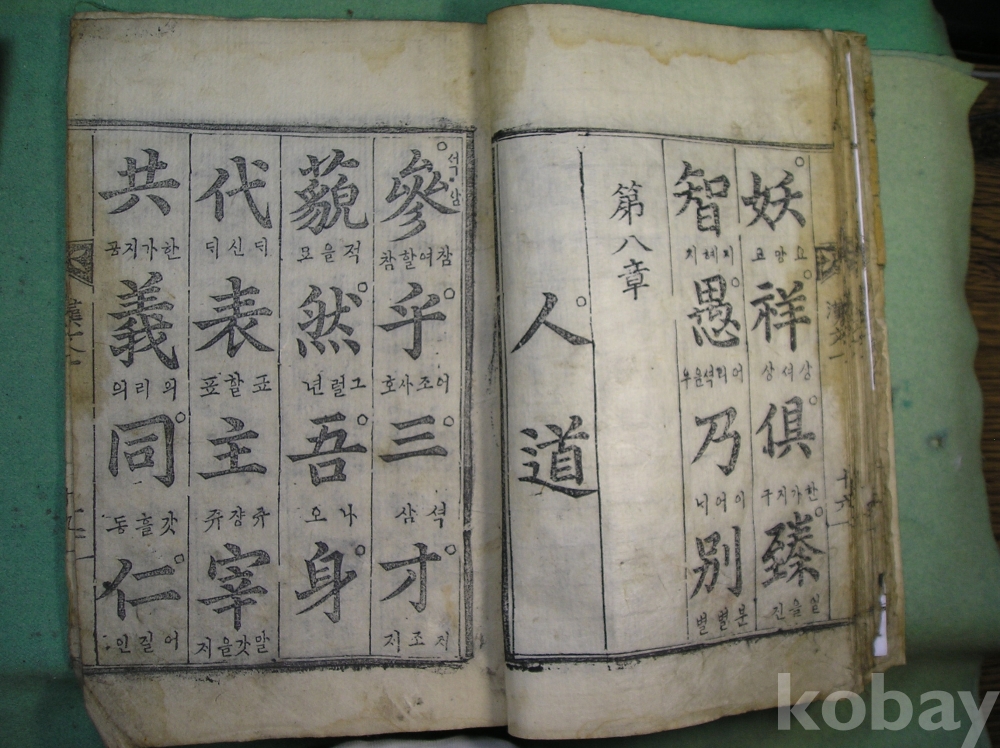 妖
요망요
祥
상셔상
俱
한가지구
臻
일을진
智
지혜지
愚
어리석을우
乃
이어니
別
분별별
第八章
人道
參
석 삼
참여할참
乎
어조사호
三
석삼
才
지조지
藐
적을모
然
그럴년
吾
나오
身
代
디신디
表
표할표
主
쥬쟝쥬
宰
말갓을지
共
한가지공
義
의리의
同
갓흘동
仁
어질인
kobay